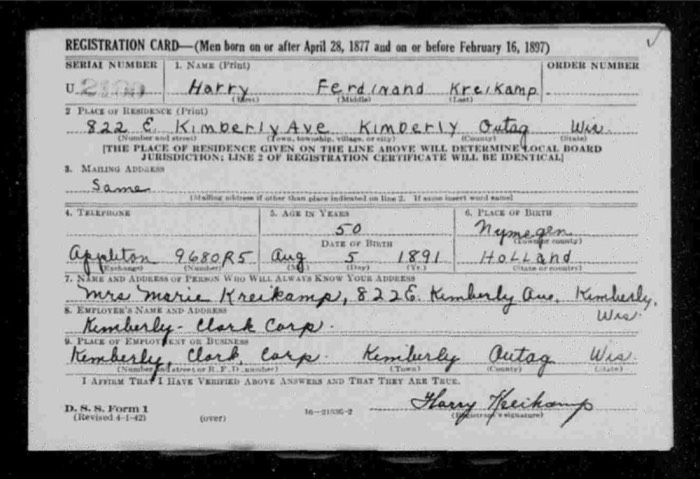 REGISTRATION CARD—(Men born on or after April 28, 1877 and on or before February 16, 1897)
SERIAL NUMBER 1. NAME (Print) ORDER NUMBER
U Harry Ferdinand Kreikamp
(First) (Middle) (Last)
2 PLACE OF RESIDENCE (Print)
822 E. Kimberly Ave Kimberly Outag Wis.
(Number and street) (Town, township, village, or city) (County) (State)
[THE PLACE OF RESIDENCE GIVEN ON THE LINE ABOVE WILL DETERMINE LOCAL BOARD
JURISDICTION; LINE 2 OF REGISTRATION CERTIFICATE WILL BE IDENTICAL]
3. MAILING ADDRESS
Same
[Mailing address if other than place indicated on line 2. If same insert word same]
4. TELEPHONE 5. AGE IN YEARS 6. PLACE OF BIRTH
50 Nymegen
DATE OF BIRTH (Town or county)
Appleton 9680R5 Aug 5 1891 HOLLAND
(Exchange) (Number) (Mo.) (Day) (Yr.) (State or country)
7. NAME AND ADDRESS OF PERSON WHO WILL ALWAYS KNOW YOUR ADDRESS
Mrs Marie Kreikamp, 822 E. Kimberly Ave, Kimberly,
8. EMPLOYER'S NAME AND ADDRESS Wis.
Kimberly-Clark Corp.
9. PLACE OF EMPLOYMENT OR BUSINESS
Kimberly, Clark, Corp. Kimberly Outag Wis.
(Number and street or R. F. D. number) (Town) (County) (State)
I AFFIRM THAT I HAVE VERIFIED ABOVE ANSWERS AND THAT THEY ARE TRUE.
Harry Kreikamp
D. S. S. Form 1 (Registrant's signature)
(Revised 4-1-42) (over)